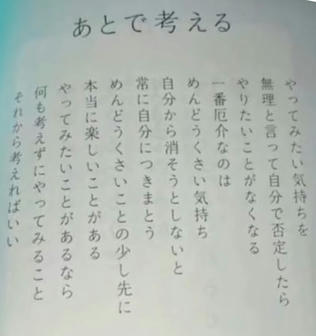 あとで考える
やってみたい気持ちを
無理と言って自分で否定したら
やりたいことがなくなる
一番厄介なのは
めんどうくさい気持ち
自分から消そうとしないと
常に自分につきまとう
めんどうくさいことの少し先に
本当に楽しいことがある
やってみたいことがあるなら
何も考えずにやってみること
それから考えればいい